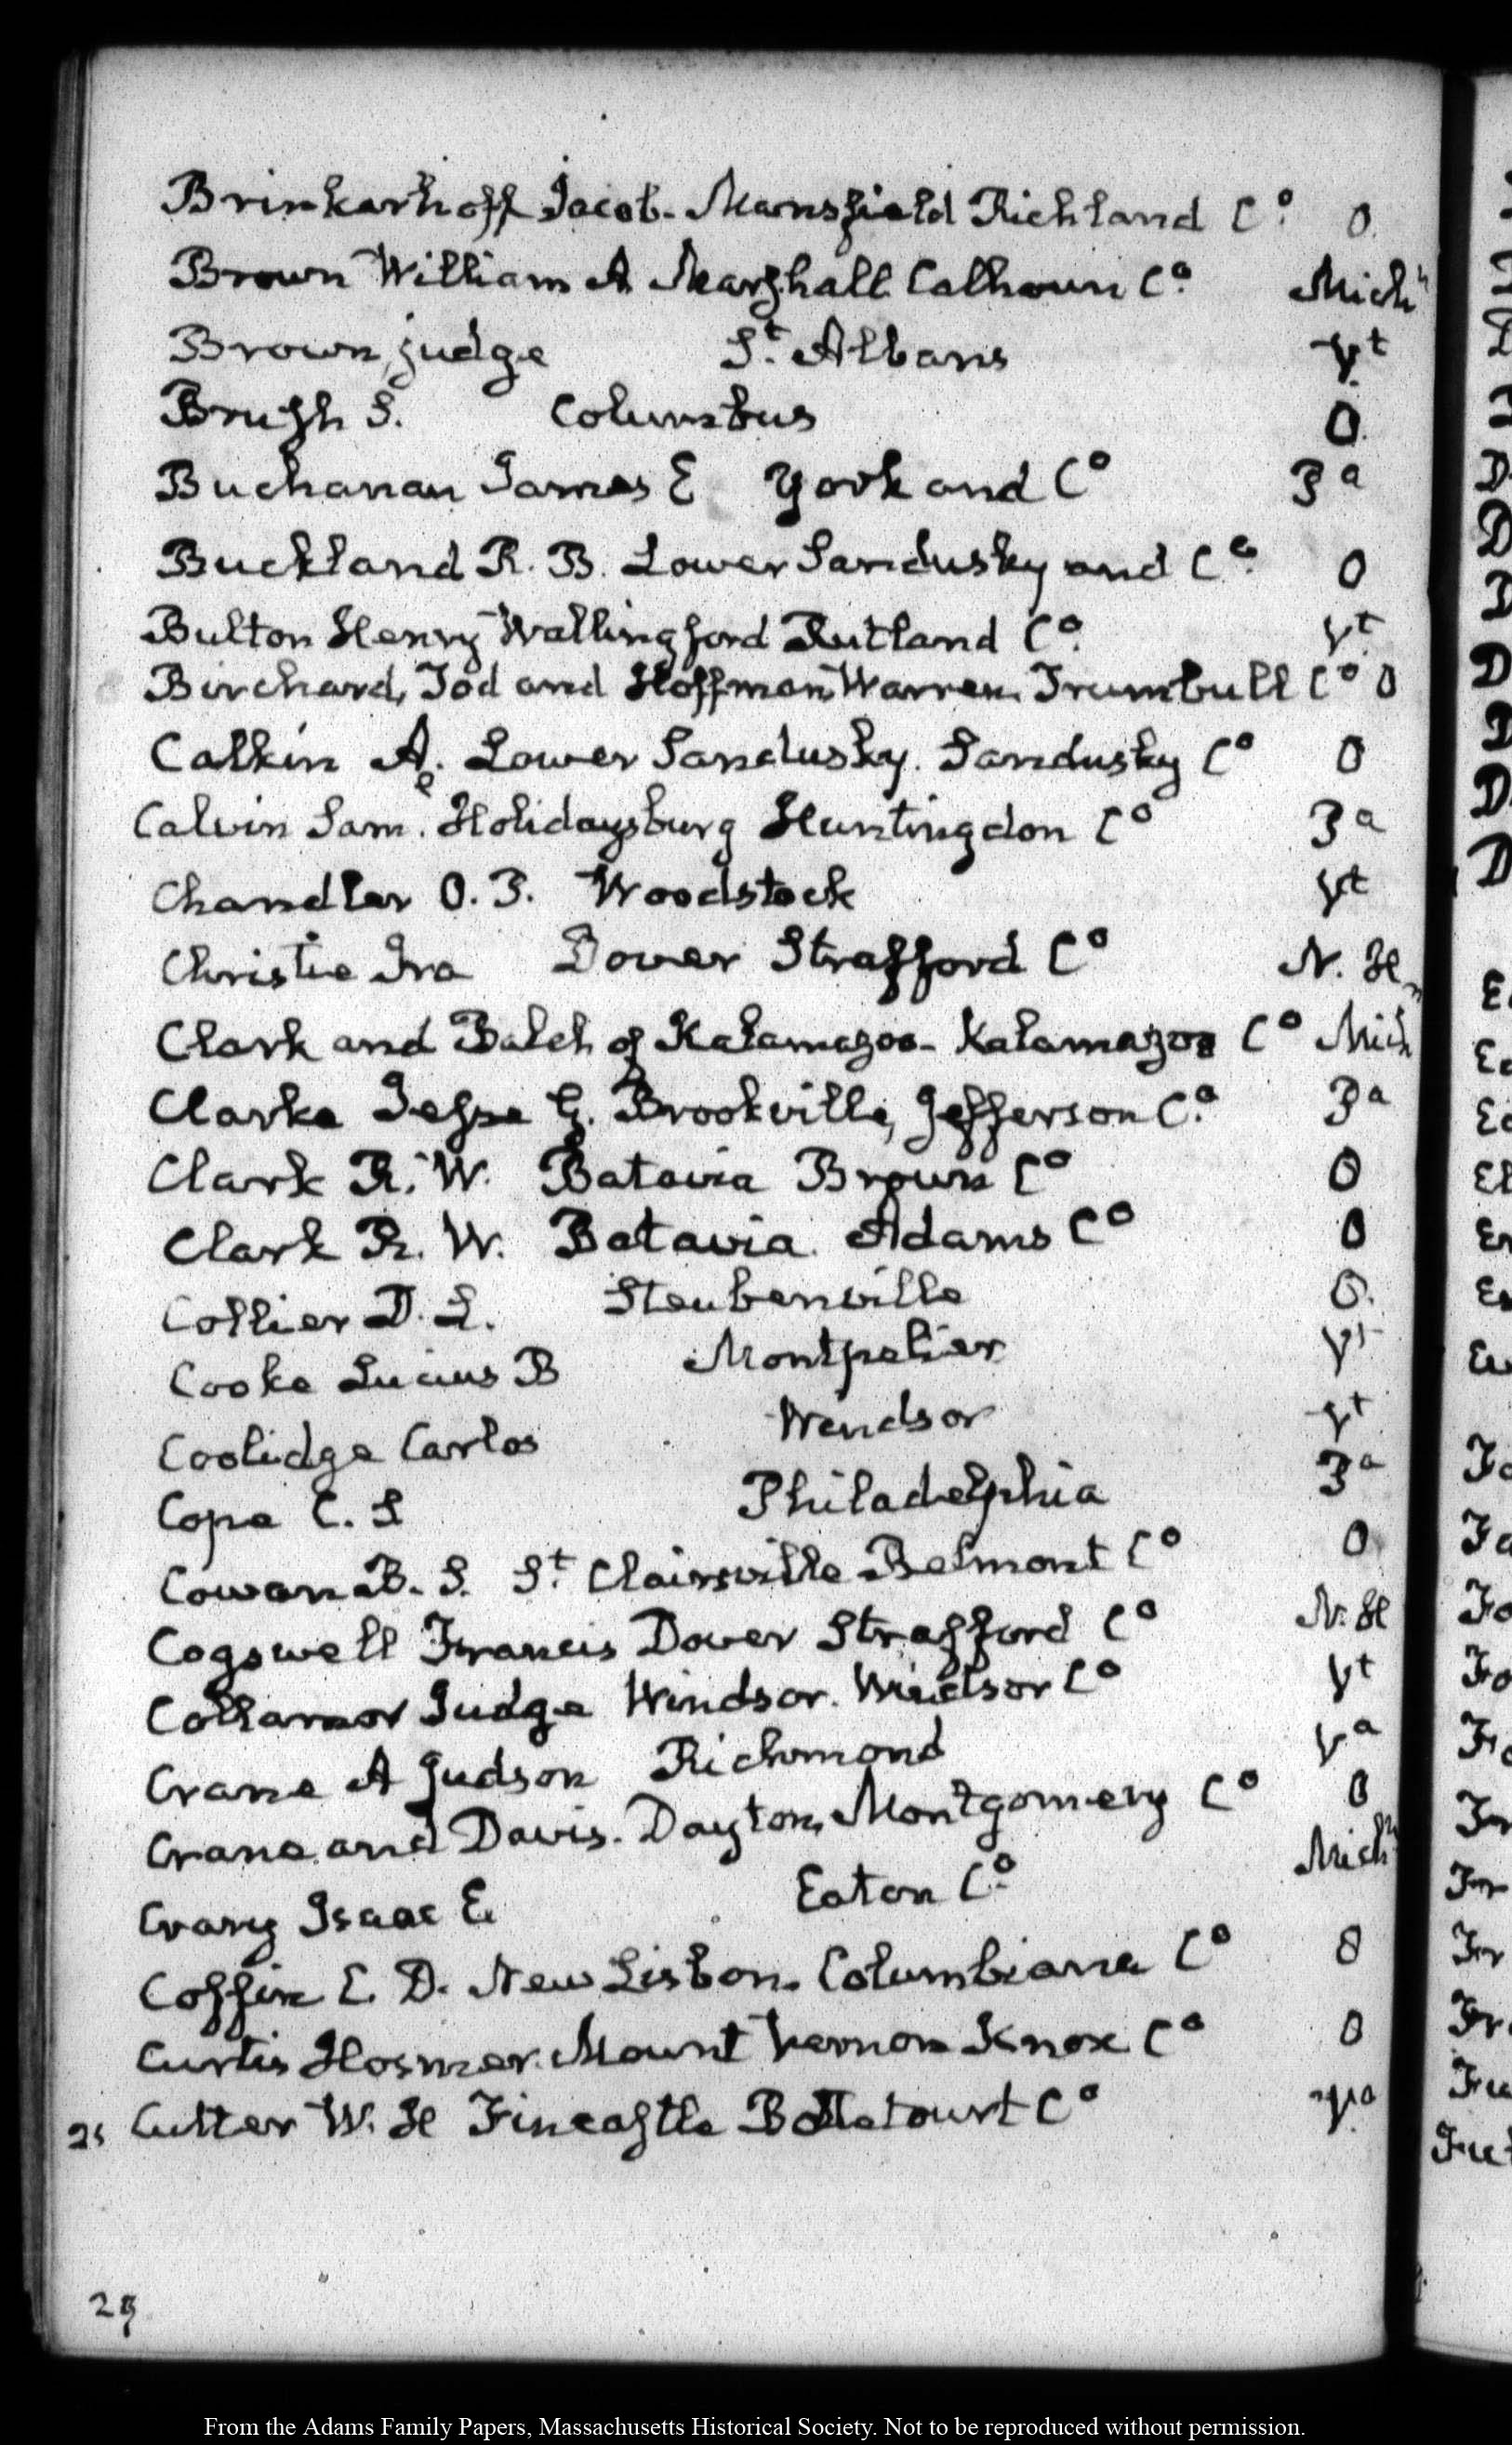 Brinkerhoff Jacob. Mansfield Richland Co. O.
Brown William A Marshall Calhoun Co. Michn
Brown, judge St. Albans Vt
Brush S. Columbus O.
Buchanan James E York and Co Pa
Buckland R. B. Lower Sandusky and Co. O
Bulton Henry Wallingford Rutland Co. Vt.
Birchard, Tod and Hoffman Warren. Trumbull Co O
Calkin A. Lower Sandusky. Sandusky Co O
Calvin Sam. Holidaysburg Huntingdon Co Pa
Chandler O. P. Woodstock Vt
Christie Ira Dover Strafford Co N. H
Clark and Balch of Kalamazoo. Kalamazoo Co Mich
Clarke Jesse G. Brookville, Jefferson Co. Pa
Clark R. W. Batavia Brown Co O
Clark R. W. Batavia. Adams Co O
Collier D. L. Steubenville O.
Cooke Lucius B Montpelier Vt
Coolidge Carlos Windsor Vt
Cope C. S Philadelphia Pa
Cowan B. S. St. Clairsville Belmont Co O
Cogswell Francis Dover Strafford Co N. H
Collamor Judge Windsor. Windsor Co Vt
Crane A Judson Richmond Va
Crane and Davis. Dayton, Montgomery Co O
Crary Isaac E. Eaton Co. Michn
Coffin C. D. New Lisbon. Columbiana Co O
Curtis Hosmer. Mount Vernon Knox Co O
Cutter W. H Fincastle Bottetourt Co Va
29
From the Adams Family Papers, Massachusetts Historical Society. Not to be reproduced without permission.